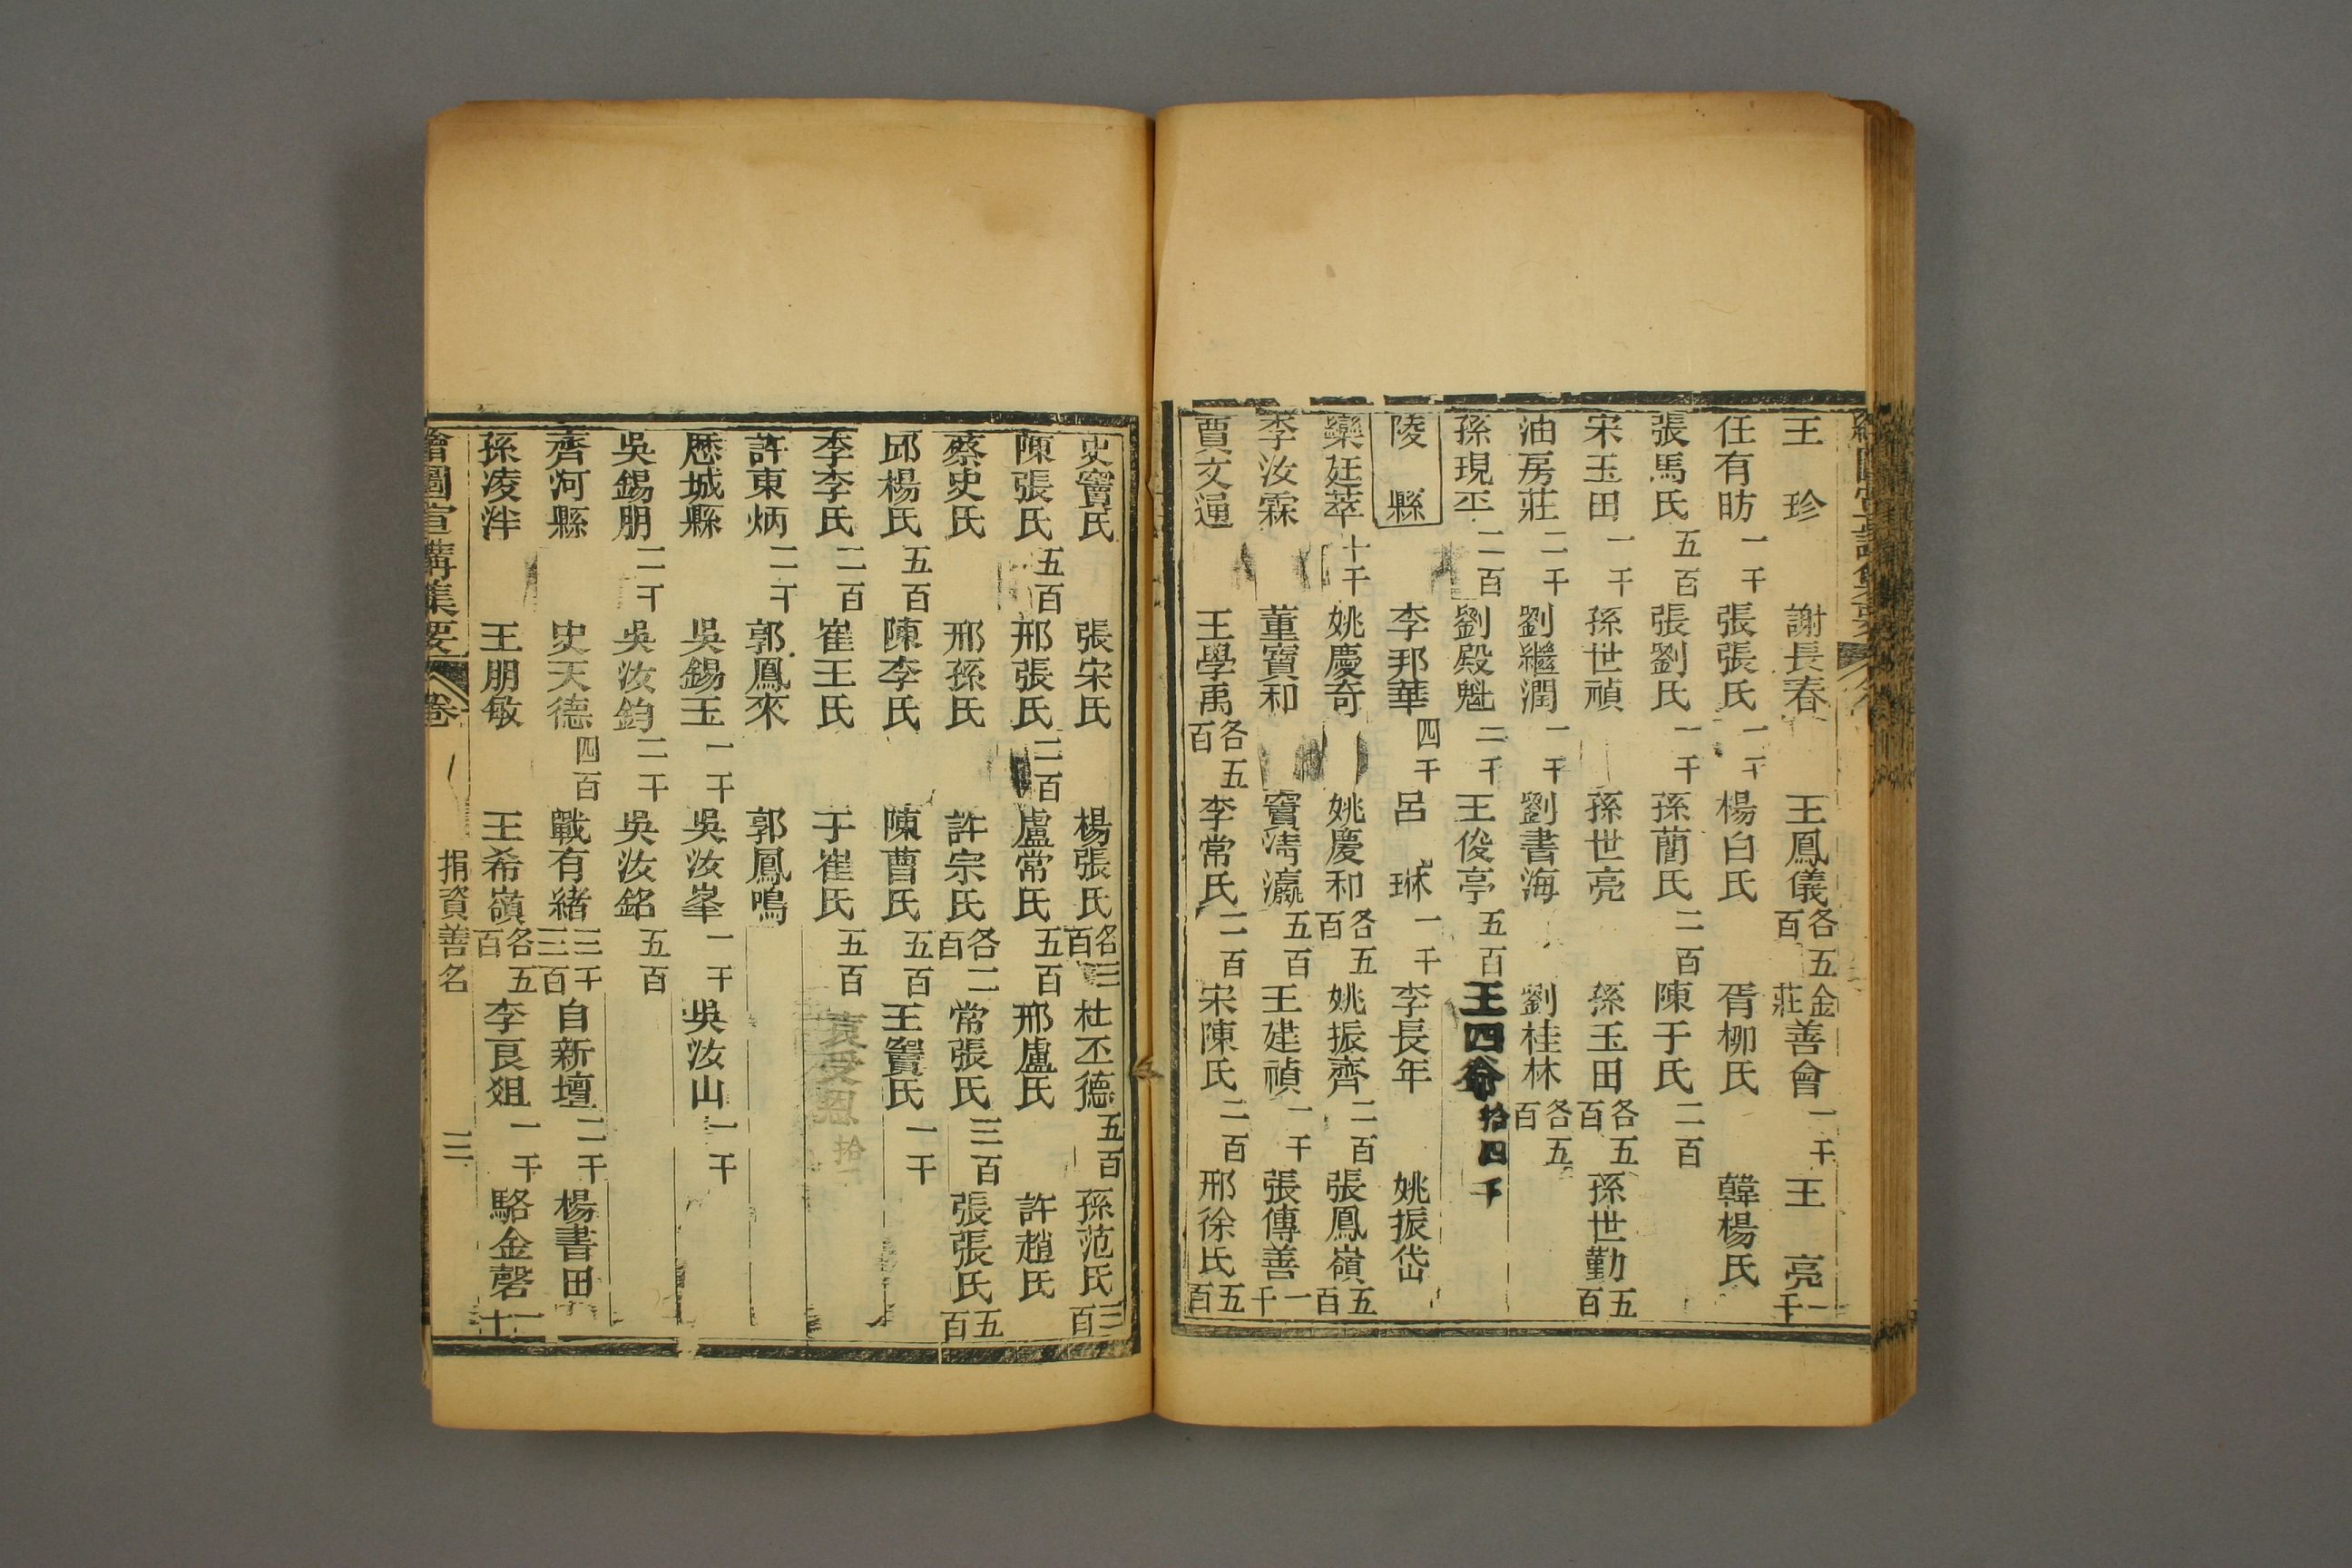 王珍 謝長春 王鳳儀各五百 金莊善會一千 王亮一千
任有昉一千 張張氏一千 楊白氏 胥柳氏 韓楊氏
張馬氏五百 張劉氏一千 孫蘭氏二百 陳于氏二百
宋玉田一千 孫世禎 孫世亮 孫玉田各五百 孫世勤五百
油房莊二千 劉繼潤一千 劉書海 劉桂林各五百
孫現平二百 劉殿魁二千 王俊亭五百 王四爺拾四千
陵縣 李邦華四千 呂琳一千 李長年 姚振岱
欒廷萃十千 姚慶奇 姚慶和各五百 姚振齊二百 張鳳嶺五百
李汝霖 董寶和 竇清瀛五百 王建禎一千 張傳善一千
賈文通 王學禹各五百 李常氏二百 宋陳氏二百 邢徐氏五百
史竇氏 張宋氏 楊張氏各三百 杜丕德五百 孫范氏三百
陳張氏五百 邢張氏二百 盧常氏五百 邢盧氏 許趙氏
蔡史氏 邢孫氏 許宗氏各二百 常張氏三百 張張氏五百
邱楊氏五百 陳李氏 陳曹氏五百 王竇氏一千
李李氏二百 崔王氏 于崔氏五百 袁受恩拾
許東炳二千 郭鳳來 郭鳳鳴
歷城縣 吳錫玉一千 吳汝峯一千 吳汝山一千
吳錫朋二千 吳汝鈞二千 吳汝銘五百
齊河縣 史天德四百 戰有緒三千三百 自新壇二千 楊書田
孫凌泮 王朋敏 王希嶺各五百 李良俎一千 駱金磬一千
繪圖宣講集要 卷 捐資善名 三